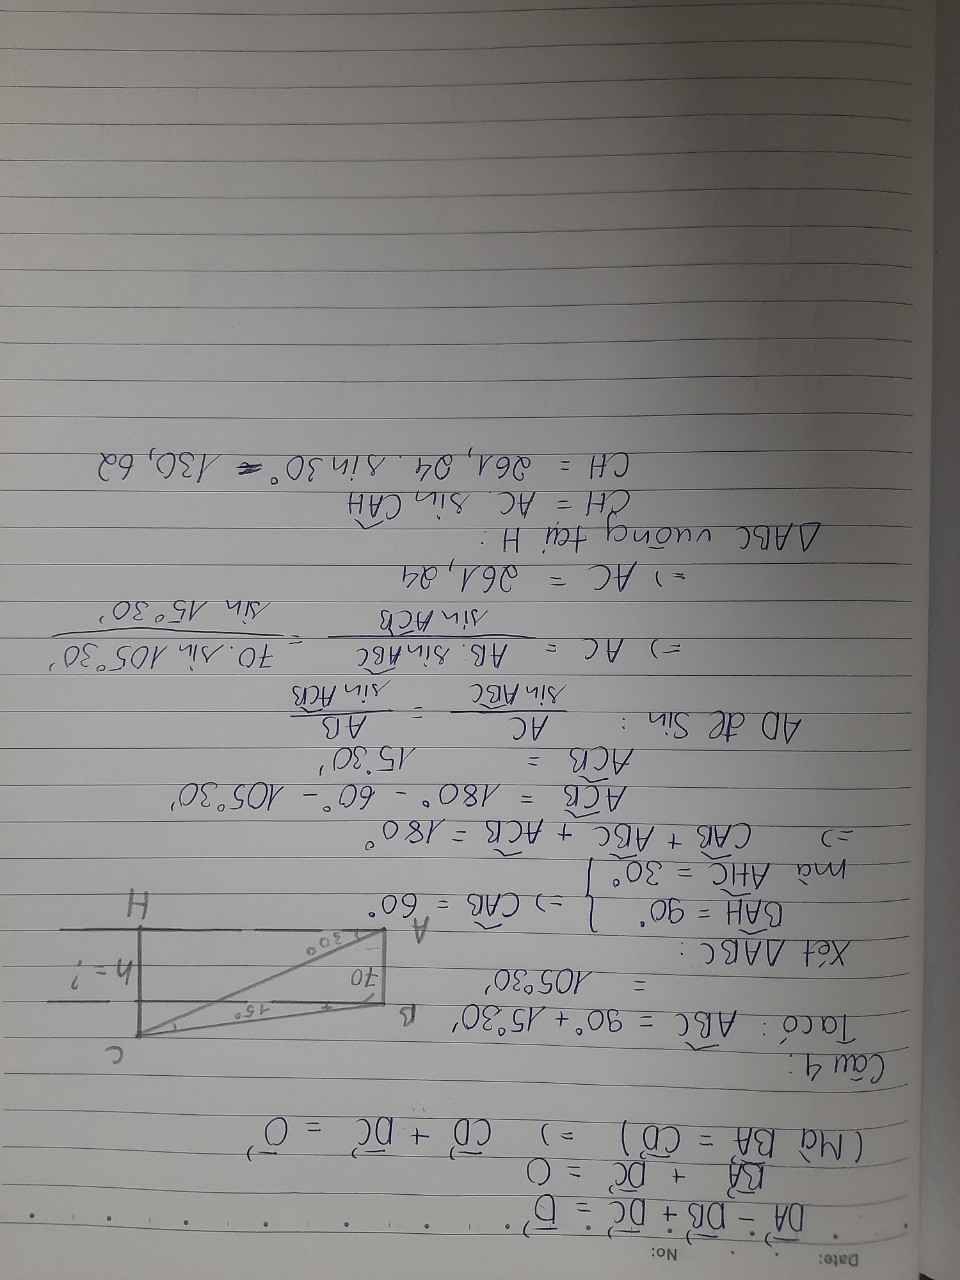 Date: No:
DA⃗ - DB⃗ + DC⃗ = O⃗
BA⃗ + DC⃗ = O
(Mà BA⃗ = CD⃗) => CD⃗ + DC⃗ = O⃗
Câu 4:
Ta có: ABC̑ = 90° + 15°30'
= 105°30'
Xét ΔABC:
BAH̑ = 90°
mà AHC̑ = 30° } => CAB̑ = 60°
=> CAB̑ + ABC̑ + ACB̑ = 180°
ACB̑ = 180° - 60° - 105°30'
ACB̑ = 15°30'
AD đl Sin: AC / sin ABC̑ = AB / sin ACB̑
=> AC = AB. sin ABC̑ / sin ACB̑ = 70. sin 105°30' / sin 15°30'
=> AC = 261,24
ΔABC vuông tại H:
CH = AC. sin CAH̑
CH = 261,24. sin 30° = 130,62
C
B
15°
70
h = ?
30°
A
H